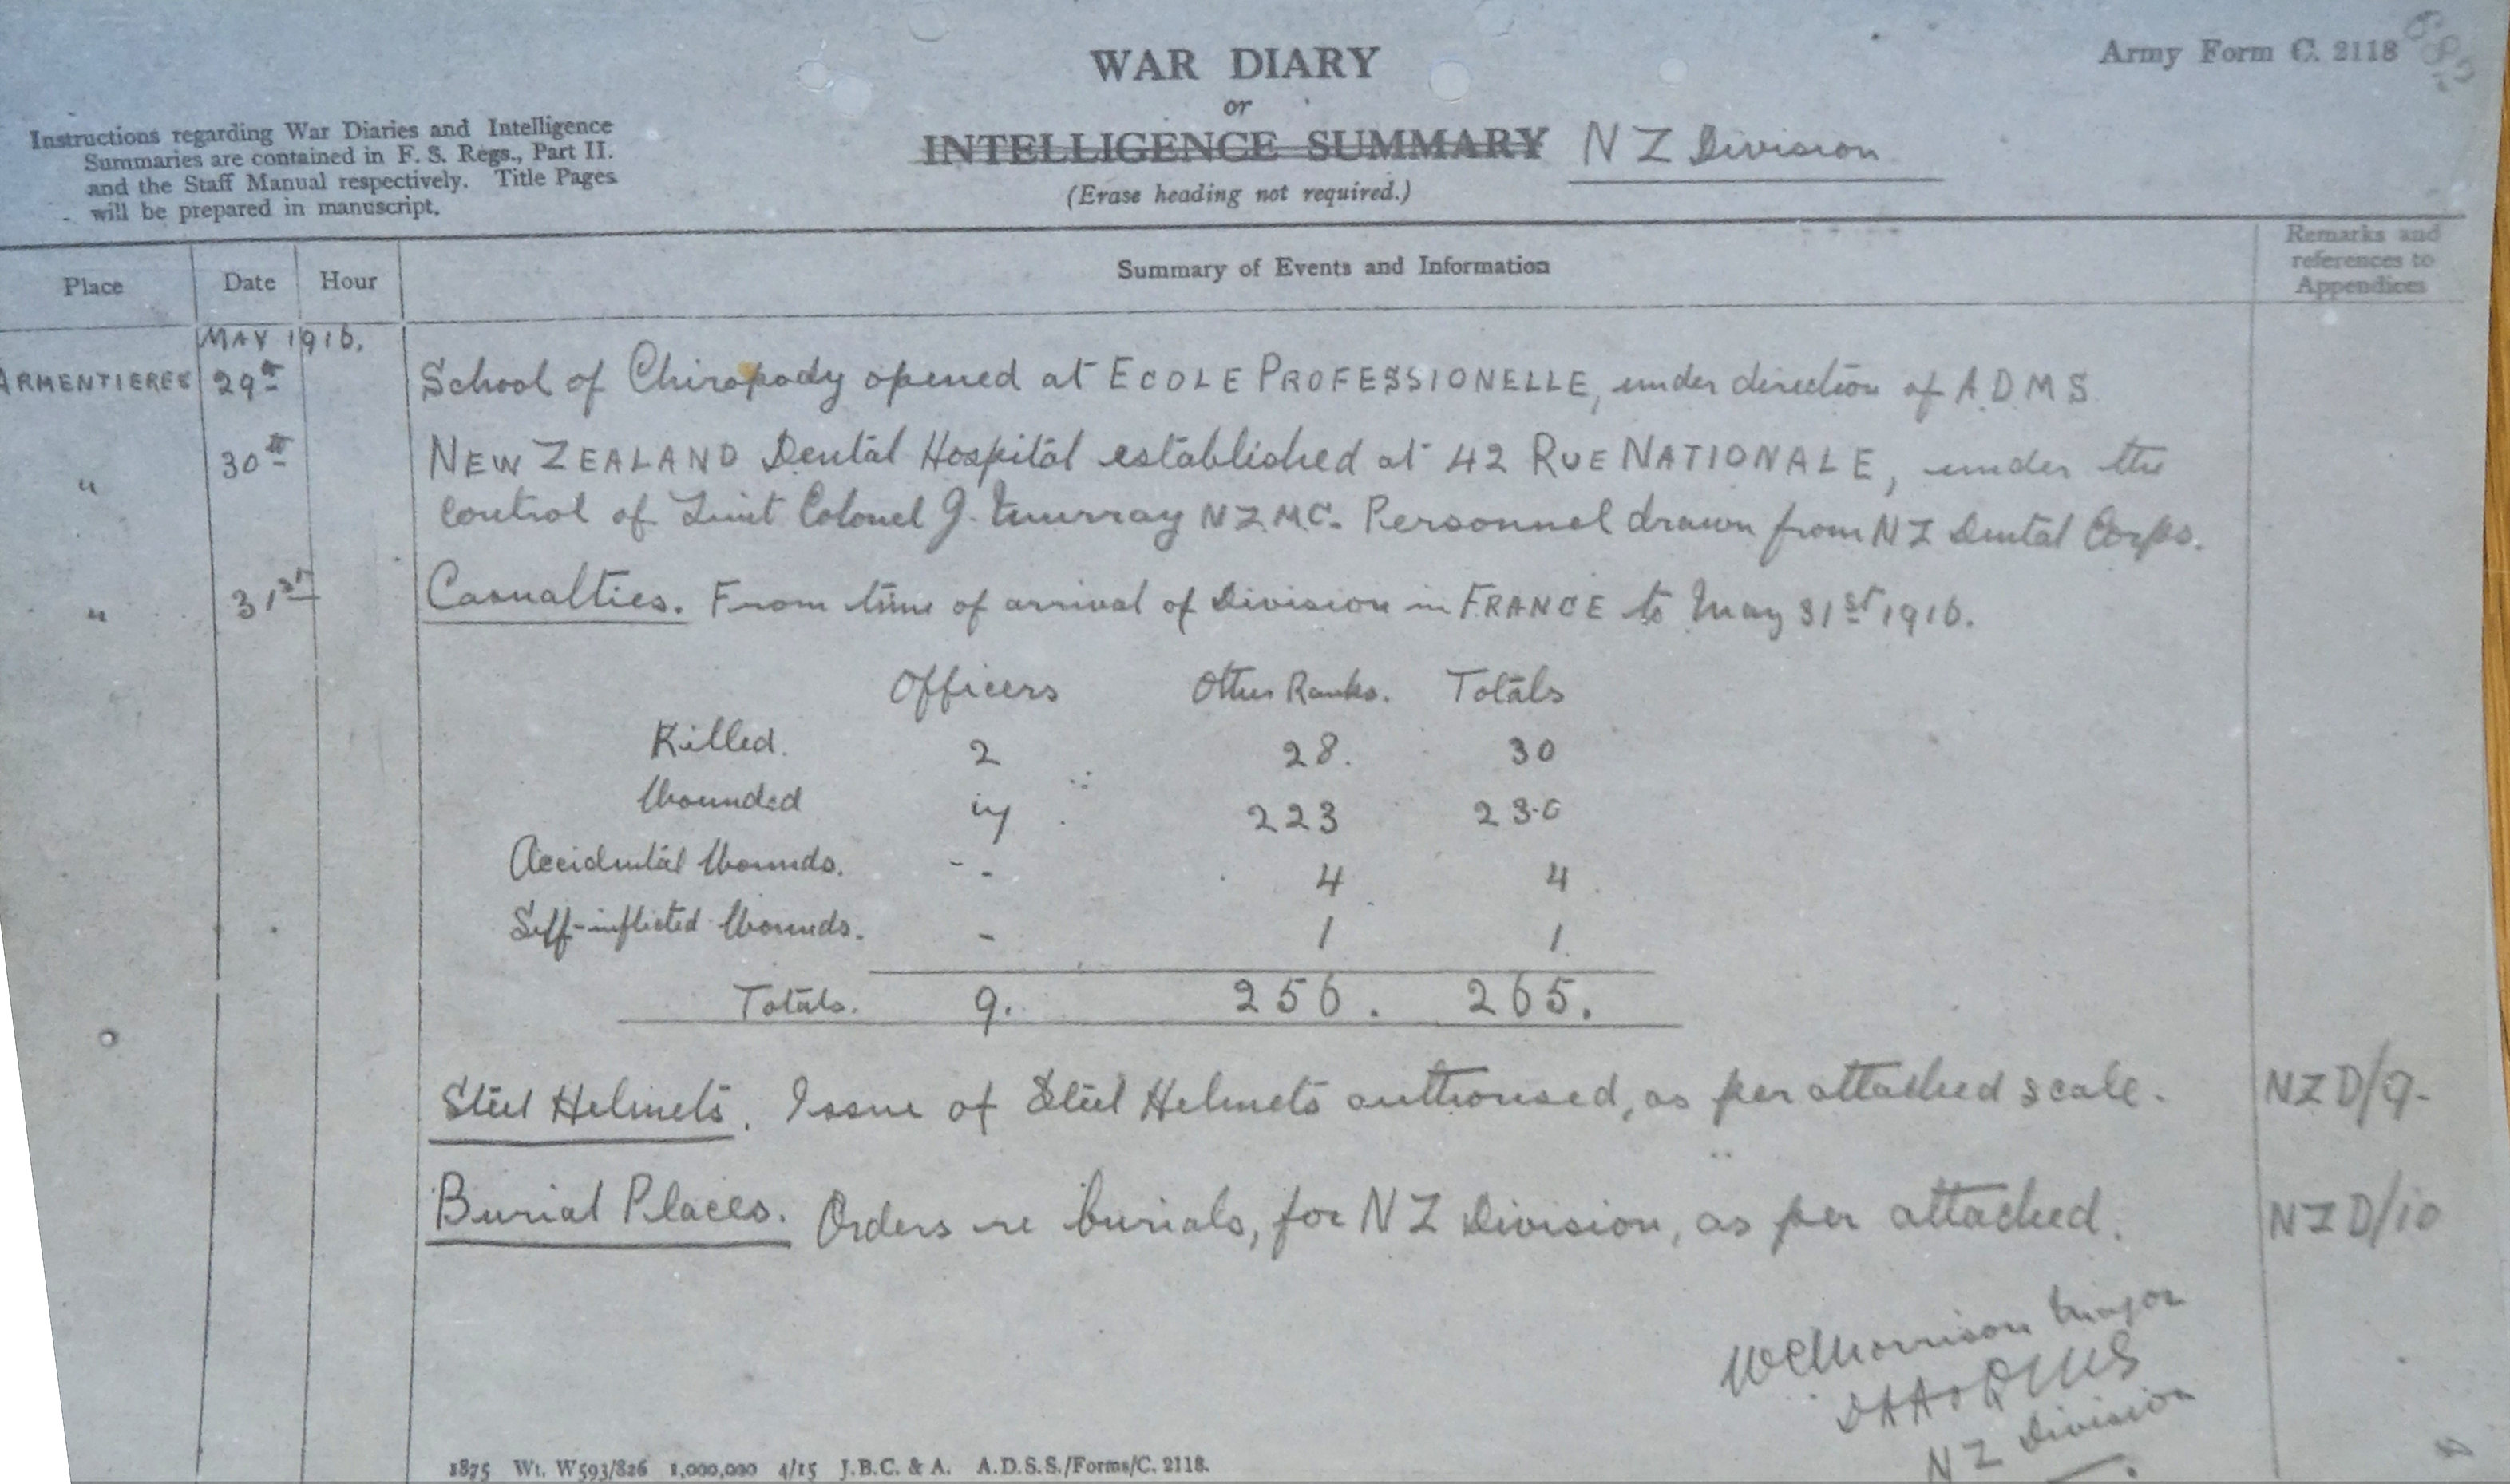 WAR DIARY
Army Form C. 2118
or
Instructions regarding War Diaries and Intelligence
Summaries are contained in F. S. Regs., Part II.
and the Staff Manual respectively. Title Pages
will be prepared in manuscript.
INTELLIGENCE SUMMARY NZ Division
(Erase heading not required.)
Place Date Hour Summary of Events and Information Remarks and references to Appendices
MAY 1916.
ARMENTIERES 29th School of Chiropody opened at ECOLE PROFESSIONELLE, under direction of A.D.M.S
" 30th NEW ZEALAND Dental Hospital established at 42 RUE NATIONALE, under the
control of Lieut Colonel J. Murray NZMC. Personnel drawn from NZ Dental Corps.
" 31st Casualties. From time of arrival of Division in FRANCE to May 31st 1916.
Officers Other Ranks. Totals
Killed. 2 28. 30
Wounded 7 223 230
Accidental Wounds. - 4 4
Self-inflicted Wounds. - 1 1.
Totals. 9. 256. 265.
Steel Helmets. Issue of Steel Helmets authorised, as per attached scale. NZD/9.
Burial Places. Orders re burials, for NZ Division, as per attached. NZD/10
Morrison Major
DAA&QMG
NZ Division
1875 Wt. W593/826 1,000,000 4/15 J.B.C. & A. A.D.S.S./Forms/C. 2118.